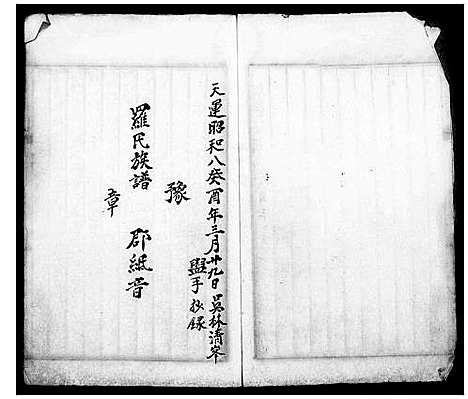 天運昭和八癸酉年三月廿九日吳林清岑
盥手抄錄
豫
羅氏族譜 郡紙音
章